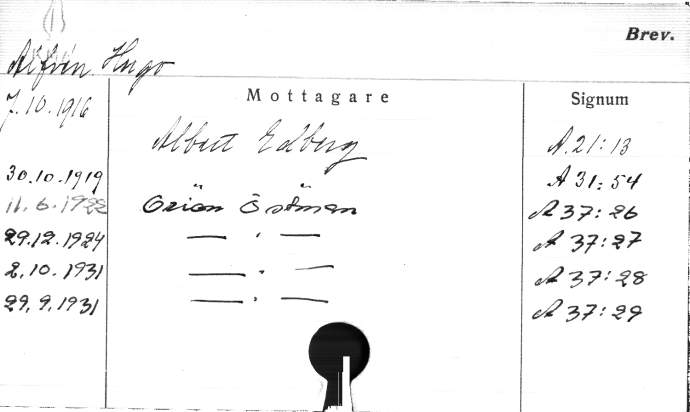 Brev.
Alfvén Hugo
Mottagare Signum
7.10.1916 Albert Edberg A.21:13
30.10.1919 A 31:54
11.6.1922 Örian Östman A 37:26
29.12.1924 — " — A 37:27
2.10.1931 — " — A 37:28
29.9.1931 — " — A 37:29